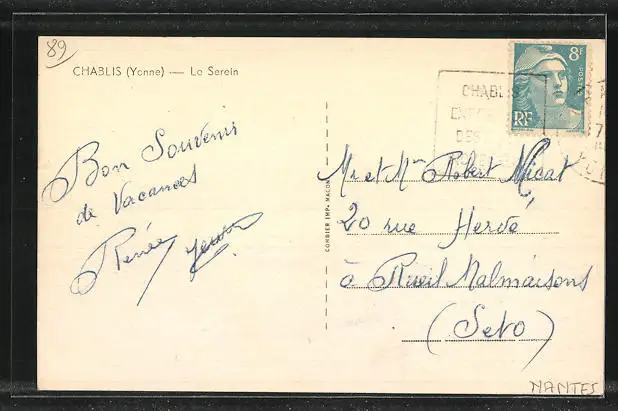 89
CHABLIS (Yonne) — Le Serein
8F
POSTES
RF
CHABLIS
DES
Bon Souvenir
de Vacances
Renée
COMBIER IMP. MACON
Mr et Mme Robert Micat
20 rue Hervé
à Rueil Malmaisons
(Seto)
NANTES